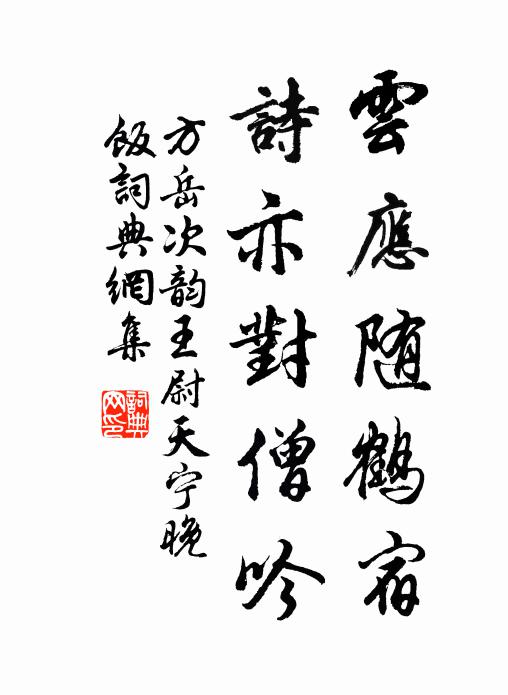 雲應随鶴宿
詩亦對僧吟
方岳次韵王尉天宁晚
飯詞典網集
詞典網印